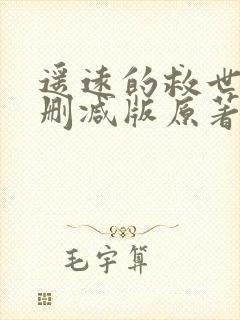 遥远的救世
删减版原著
毛宇算